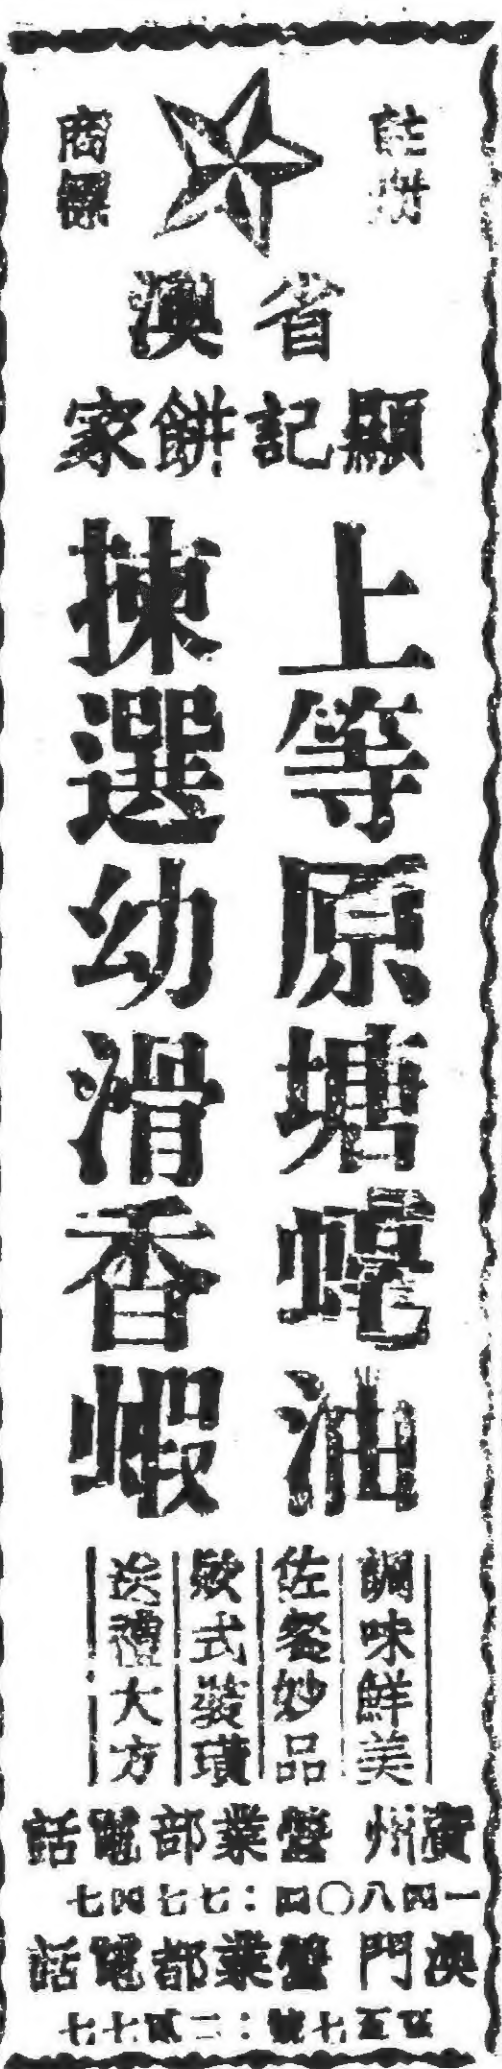 註冊
商標
省澳
顯記餅家
上等原塘蠔油
揀選幼滑香蝦
調味鮮美
佐餐妙品
欵式裝璜
送禮大方
廣州營業部電話
一四八〇四：七七四七
澳門營業部電話
五七號：二貳七七